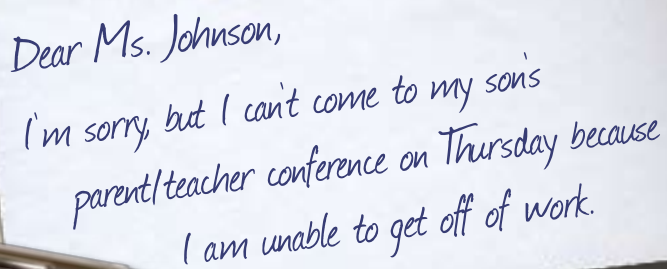 Dear Ms. Johnson,
I'm sorry, but I can't come to my son's
parent/teacher conference on Thursday because
I am unable to get off of work.